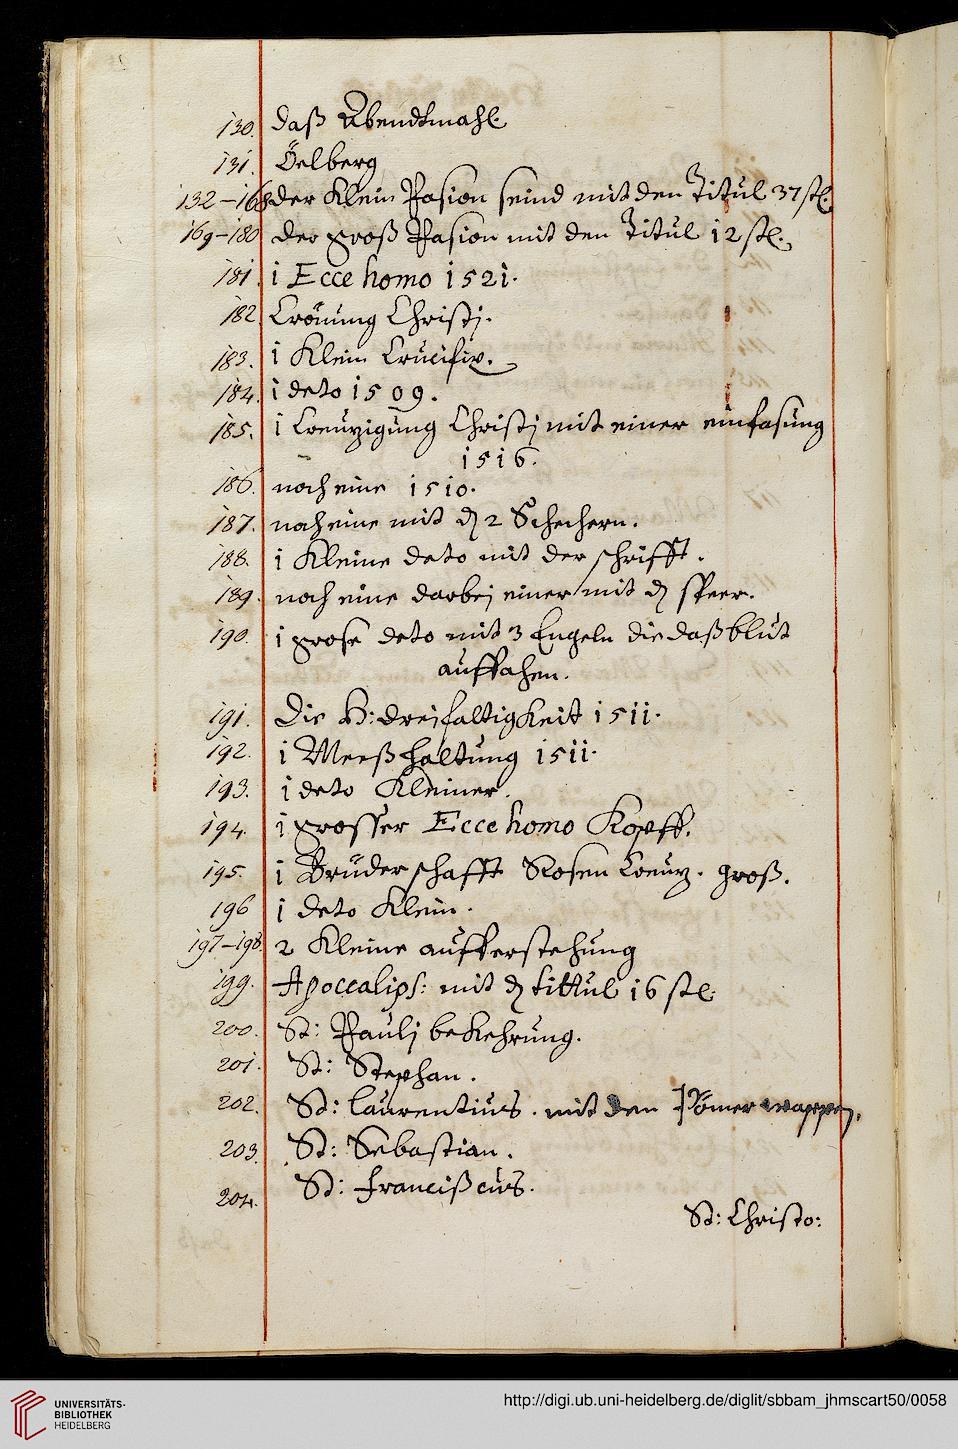 130. daß Abendtmahl.
131. Öelberg
132–168 der Klein Pasion seind mit den Titul 37 stl.
169–180 der groß Pasion mit den Titul 12 stl.
181. 1 Ecce homo 1521.
182 Crönung Christj.
183. 1 Klein Crucifix.
184. 1 deto 1509.
185. 1 Creuzigung Christj mit einer einfasung
1516.
186. noch eine 1510.
187. noch eine mit dz 2 Schechern.
188. 1 Kleine deto mit der schrifft.
189. noch eine darbej einer mit dz speer.
190. 1 grose deto mit 3 Engeln die daß blut
auffahen.
191. Die H: dreifaltigkeit 1511.
192. 1 Meeßhaltung 1511.
193. 1 deto Kleiner.
194. 1 grosser Ecce homo Kopff.
195. 1 Bruderschafft Rosen Creuz. groß.
196 1 deto Klein.
197–198. 2 Kleine aufferstehung
199. Apoccalips: mit dz tittul 16 stl.
200. St: Paulj bekehrung.
201. St: Stephan.
202. St: Laurentius. mit den Römer wappen.
203. St: Sebastian.
204. St: Francißcus.
St: Christo:
UNIVERSITÄTS-
BIBLIOTHEK
HEIDELBERG
http://digi.ub.uni-heidelberg.de/diglit/sbbam_jhmscart50/0058